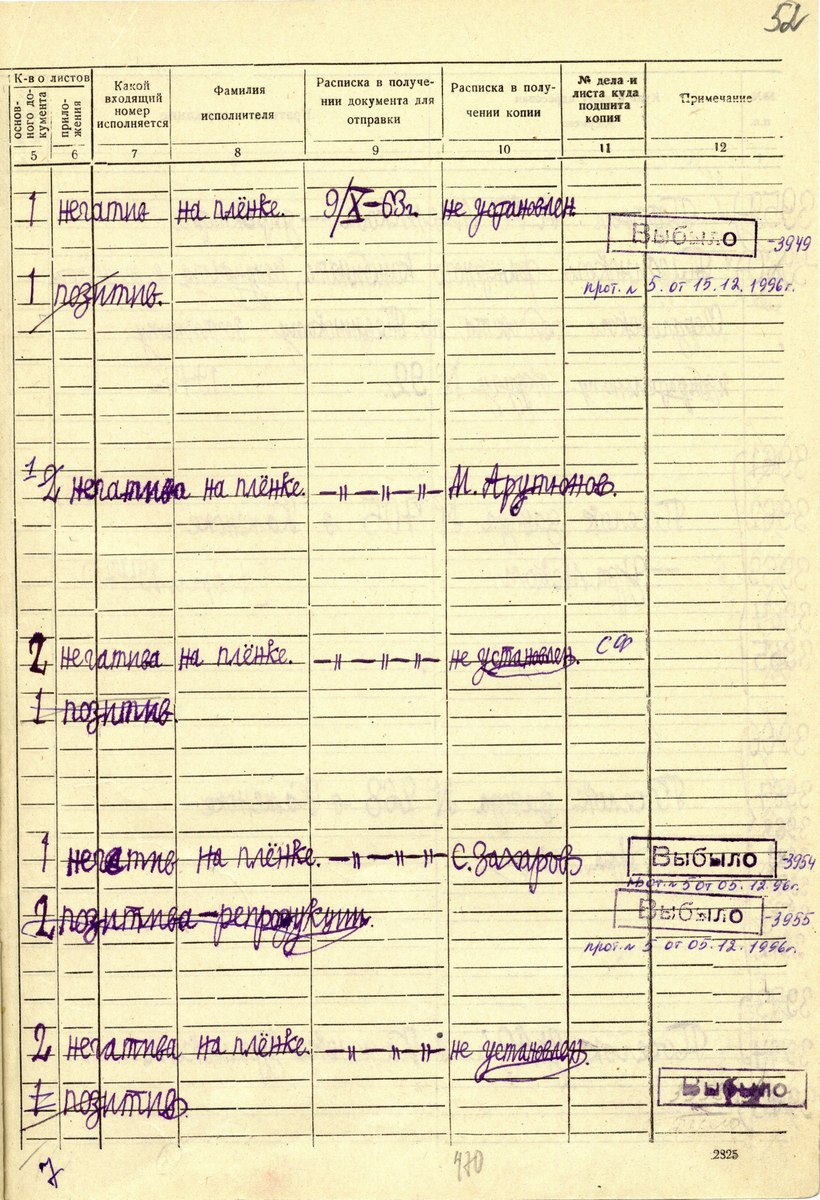 52
К-во листов
основного документа
приложения
Какой входящий номер исполняется
Фамилия исполнителя
Расписка в получении документа для отправки
Расписка в получении копии
№ дела и листа куда подшита копия
Примечание
5 6 7 8 9 10 11 12
1 негатив на плёнке. 9/X-63г. не установлен.
Выбыло -3949
1 позитив. прот. № 5. от 15.12.1996г.
1 2 негатива на плёнке. —"—"—"— М. Арутюнов.
2 негатива на плёнке. —"—"—"— не установлен. СФ
1 позитив.
1 негатив на плёнке. —"—"—"— С. Захаров Выбыло -3954
прот. № 5 от 05.12.96г.
2 позитива-репродукции. Выбыло -3955
прот. № 5 от 05.12.1996г.
2 негатива на плёнке. —"—"—"— не установлен.
1 позитив Выбыло
7 470 2325